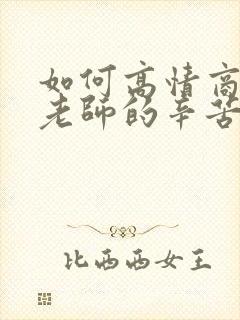 如何高情商
老師的辛苦
比西西女王